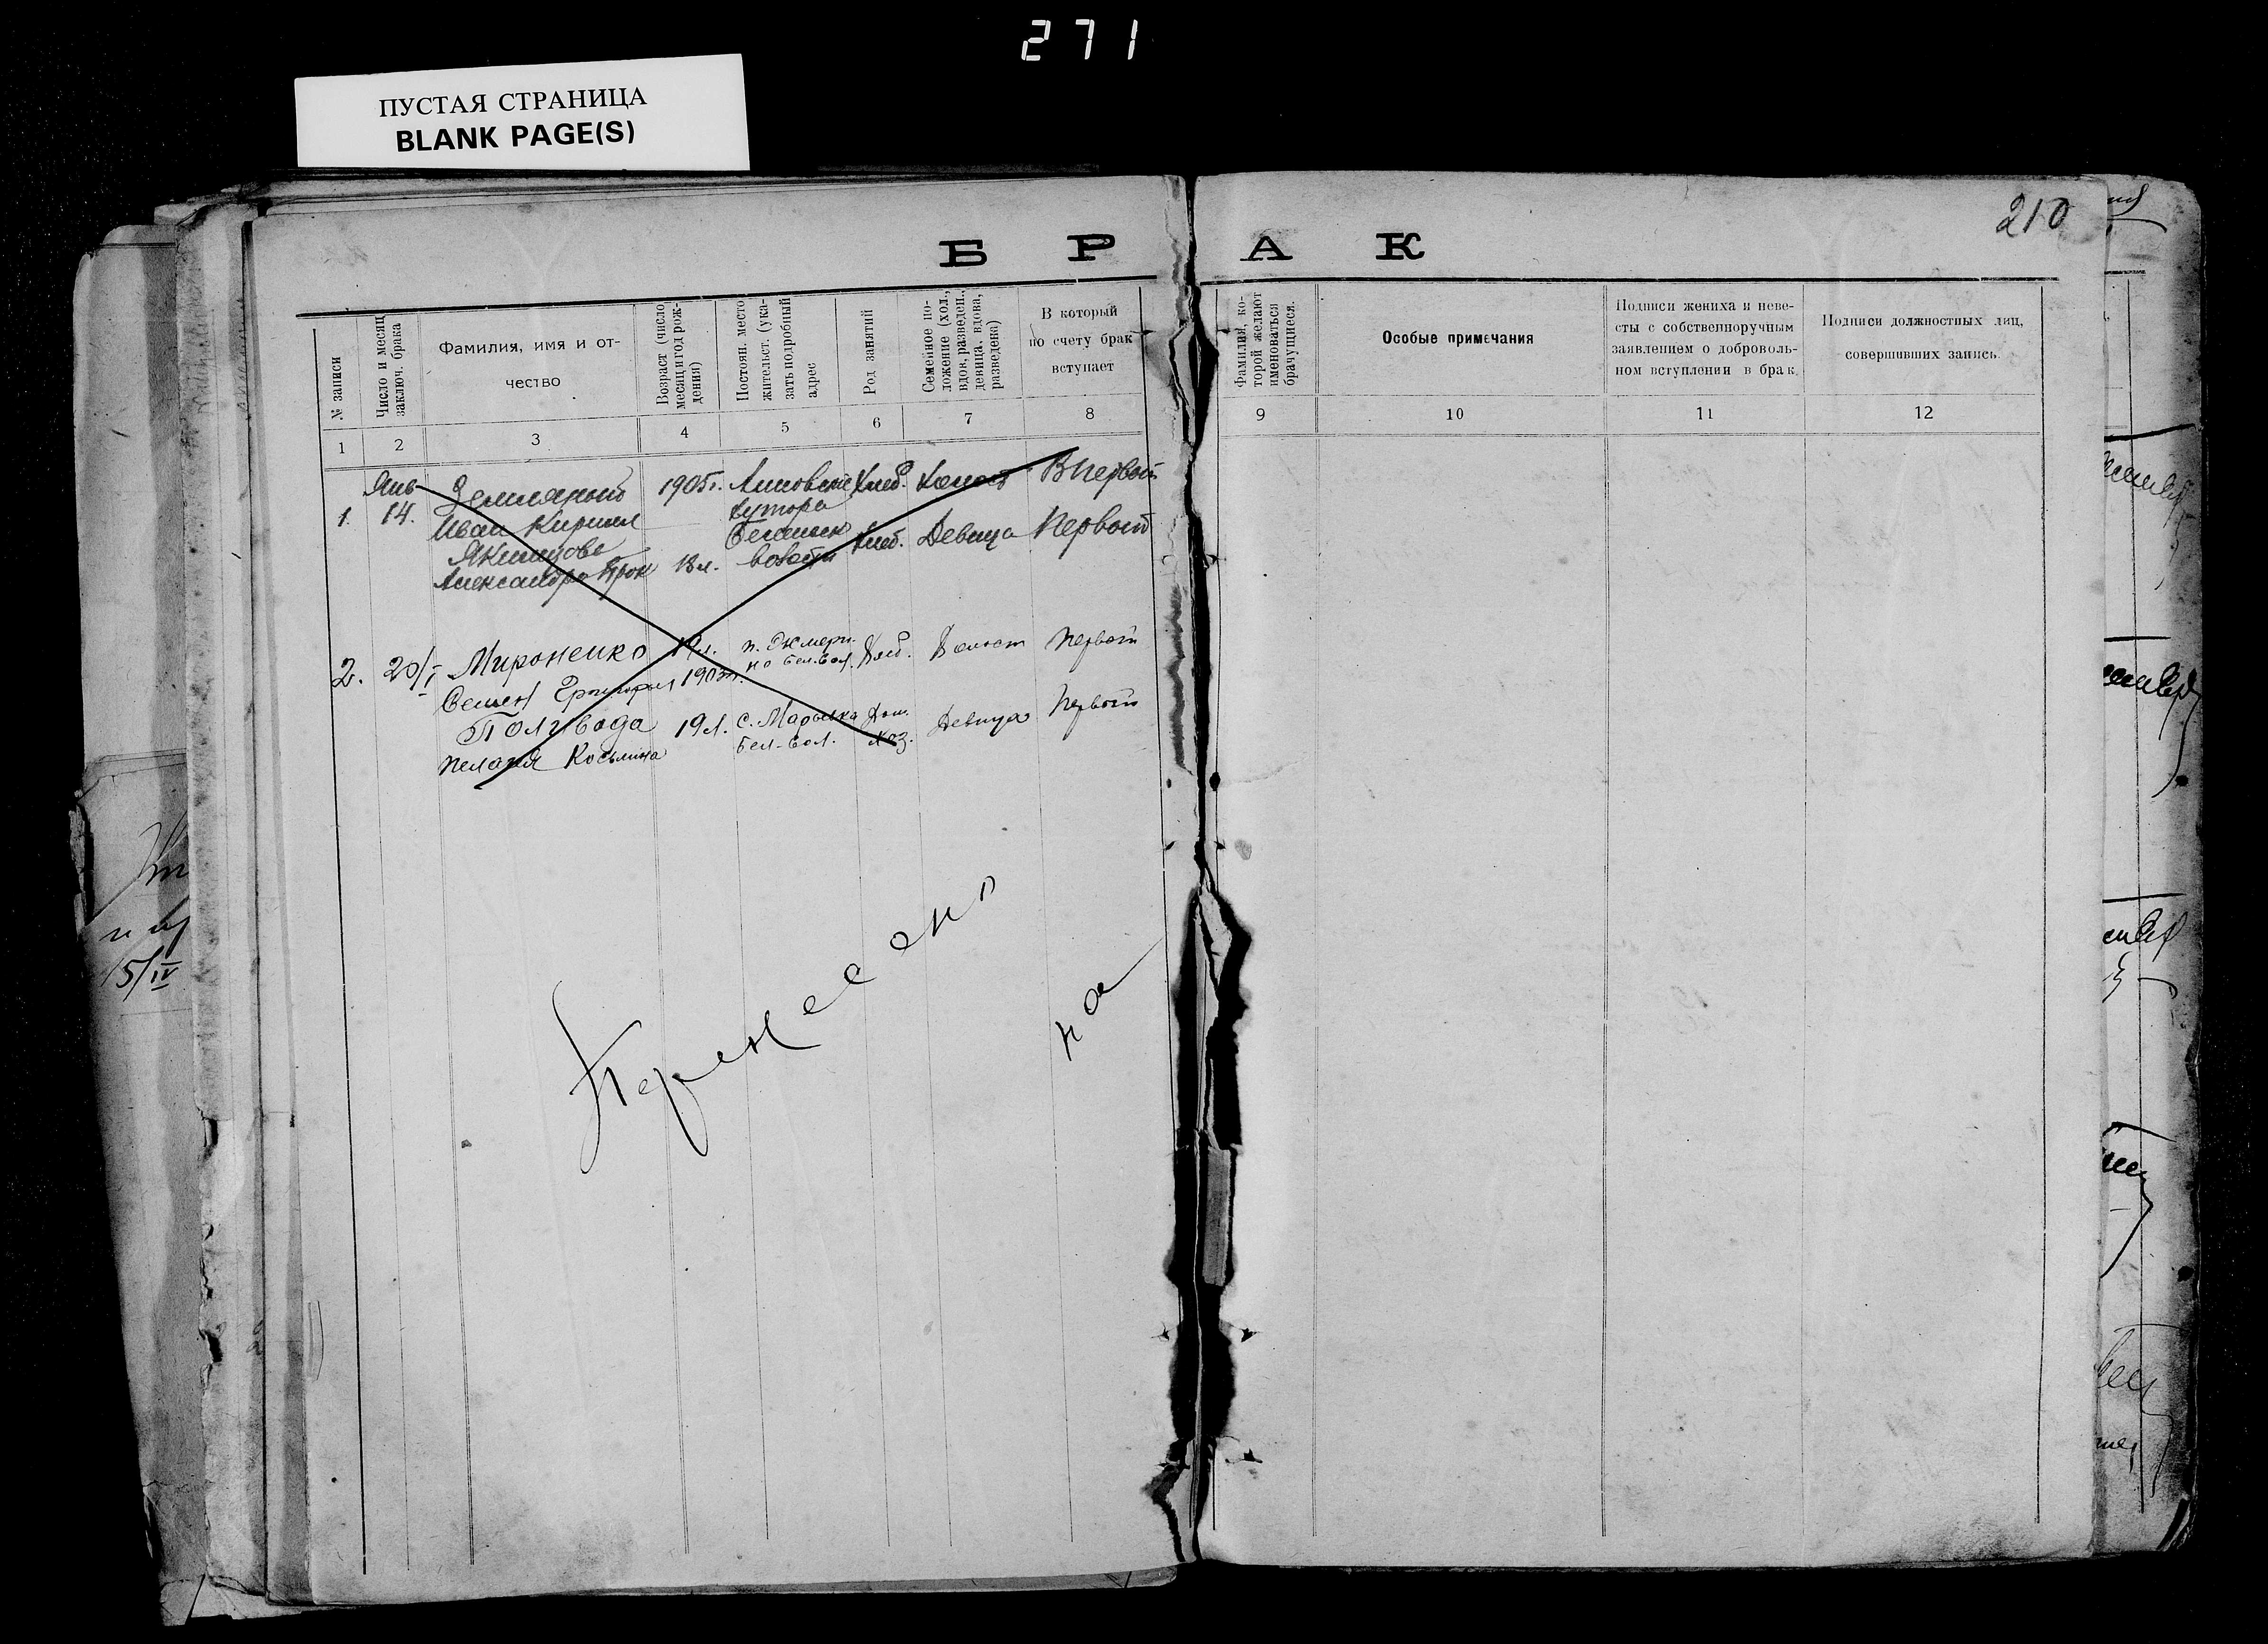 271
ПУСТАЯ СТРАНИЦА
BLANK PAGE(S)
210
БРАК
№ записи
Число и месяц заключ. брака
Фамилия, имя и отчество
Возраст (число месяц и год рождения)
Постоян. место жительст. (указать подробный адрес
Род занятий
Семейное положение (хол., вдов., разведен., девица, вдова, разведена)
В который по счету брак вступает
Фамилия, которой желают именоваться брачущиеся.
Особые примечания
Подписи жениха и невесты с собственноручным заявлением о добровольном вступлении в брак
Подписи должностных лиц, совершивших запись.
1 2 3 4 5 6 7 8 9 10 11 12
Янв 1905г. Хлеб. Холост В первый
1. 14. Иван Кирилл хутора
Хлеб. Девица Первый
Александра Прок 18 л. волости
2. 20/I Мироненко 19 л. Хлеб. Холост Первый
Семен Григорьев 1903г. Бел. вол.
Полывода 19 л. с. Марьевка Дом. Девица Первый
Пелагея Косьмина Бел. вол. хоз.
Перенесено
на
15/IV